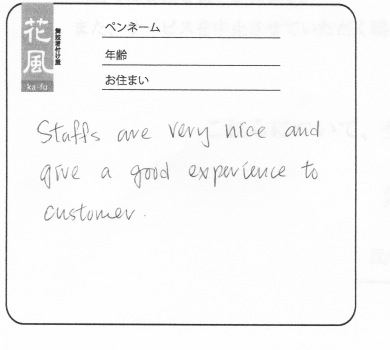 花風
舞妓着付け屋
ka-fu
ペンネーム
年齢
お住まい
Staffs are very nice and
give a good experience to
customer.